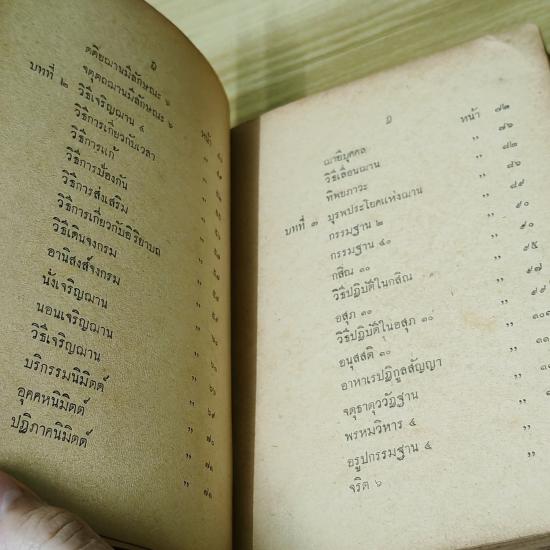 ปี
ตติยฌานมีลักษณะ ๖
จตุตถฌานมีลักษณะ ๖ หน้า
บทที่ ๒ วิธีเจริญฌาน ๔
วิธีการเกี่ยวกับเวลา
วิธีการแก้
วิธีการป้องกัน
วิธีการส่งเสริม
วิธีการเกี่ยวกับอิริยาบถ
วิธีเดินจงกรม
อานิสงส์จงกรม
นั่งเจริญฌาน
นอนเจริญฌาน
วิธีเจริญฌาน ”
บริกรรมนิมิตต์ ” ๖๙
อุคคหนิมิตต์ ” ๗๐
ปฏิภาคนิมิตต์ ” ๗๑
” ๗๑
หน้า ๗๒
ฌายีบุคคล ” ๗๖
วิธีเลื่อนฌาน ” ๘๒
ทิพยภาวะ ” ๘๖
บทที่ ๓ บุรพประโยคแห่งฌาน ” ๘๙
กรรมฐาน ๒ ” ๙๐
กรรมฐาน ๔๐ ” ๙๐
กสิณ ๑๐ ” ๙๕
วิธีปฏิบัติในกสิณ ” ๙๗
อสุภ ๑๐ ” ๙๙
วิธีปฏิบัติในอสุภ ๑๐ ”
อนุสสติ ๑๐ ”
อาหาเรปฏิกูลสัญญา ”
จตุธาตุววัฏฐาน ”
พรหมวิหาร ๔ ”
อรูปกรรมฐาน ๔ ”
จริต ๖